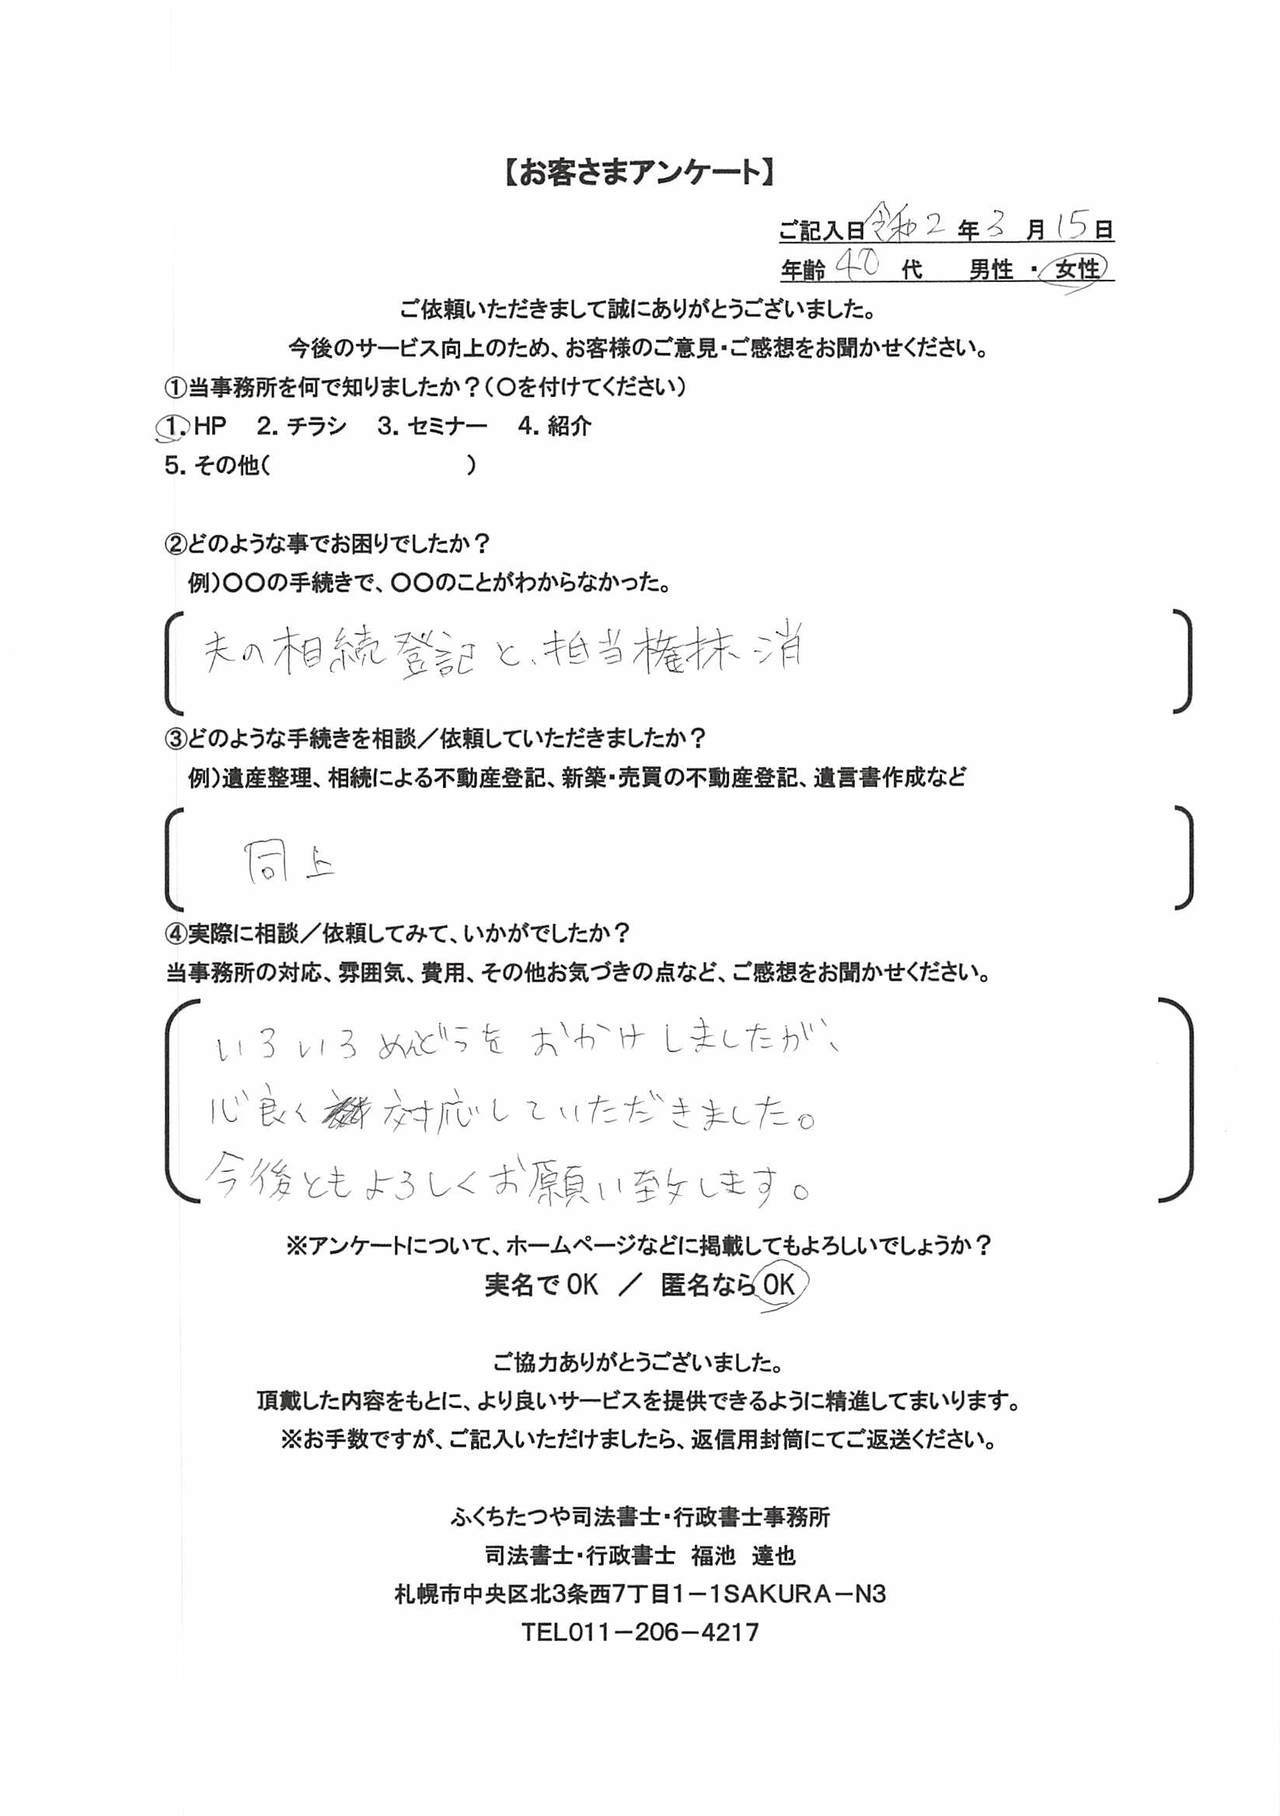 【お客さまアンケート】
ご記入日 令和2 年 3 月 15 日
年齢 40 代 男性 ・ 女性
ご依頼いただきまして誠にありがとうございました。
今後のサービス向上のため、お客様のご意見・ご感想をお聞かせください。
①当事務所を何で知りましたか？（〇を付けてください）
1. HP 2. チラシ 3. セミナー 4. 紹介
5. その他（ ）
②どのような事でお困りでしたか？
例）〇〇の手続きで、〇〇のことがわからなかった。
夫の相続登記と、担当権抹消
③どのような手続きを相談／依頼していただきましたか？
例）遺産整理、相続による不動産登記、新築・売買の不動産登記、遺言書作成など
同上
④実際に相談／依頼してみて、いかがでしたか？
当事務所の対応、雰囲気、費用、その他お気づきの点など、ご感想をお聞かせください。
いろいろめんどうをおかけしましたが、
心良く対応していただきました。
今後ともよろしくお願い致します。
※アンケートについて、ホームページなどに掲載してもよろしいでしょうか？
実名でOK ／ 匿名ならOK
ご協力ありがとうございました。
頂戴した内容をもとに、より良いサービスを提供できるように精進してまいります。
※お手数ですが、ご記入いただけましたら、返信用封筒にてご返送ください。
ふくちたつや司法書士・行政書士事務所
司法書士・行政書士 福池 達也
札幌市中央区北3条西7丁目1－1SAKURA－N3
TEL011－206－4217